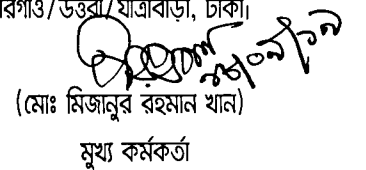 রগাঁও/উত্তরা/যাত্রাবাড়ী, ঢাকা।
(মোঃ মিজানুর রহমান খান)
মুখ্য কর্মকর্তা